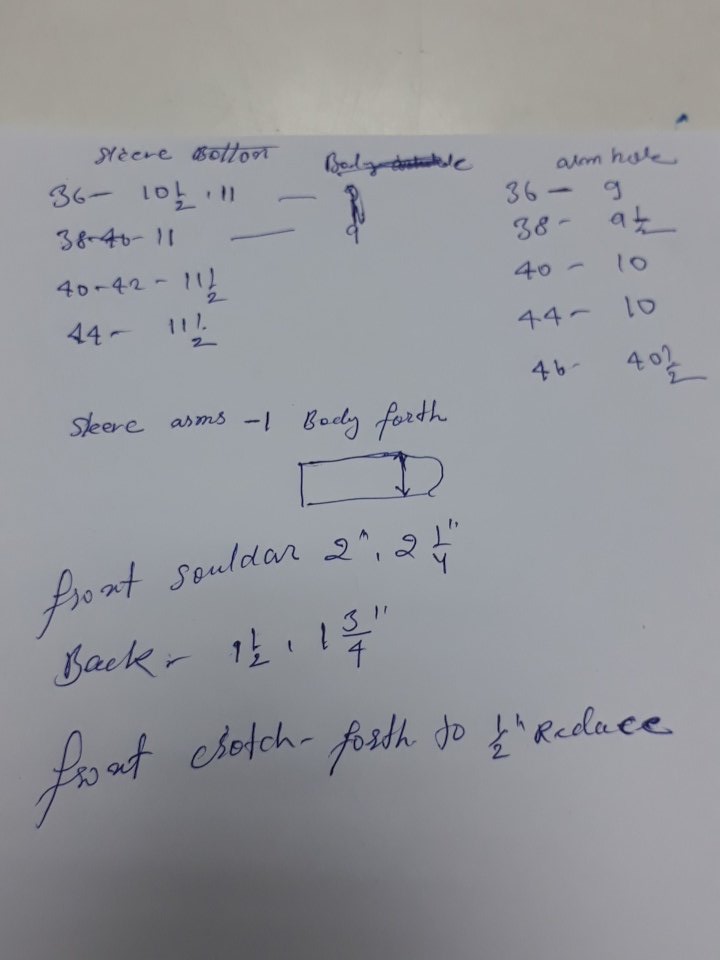 Sleeve Bottom Body armhole
36 - 10 1/2, 11 — 9
38-40- 11 — 9
40-42 - 11 1/2
44 - 11 1/2
36 - 9
38 - 9 1/2
40 - 10
44 - 10
46- 40 1/2
Sleeve arms -1 Body forth
front souldar 2", 2 1/4"
Back - 1 1/2, 1 3/4"
front crotch - forth to 1/2" Reduce